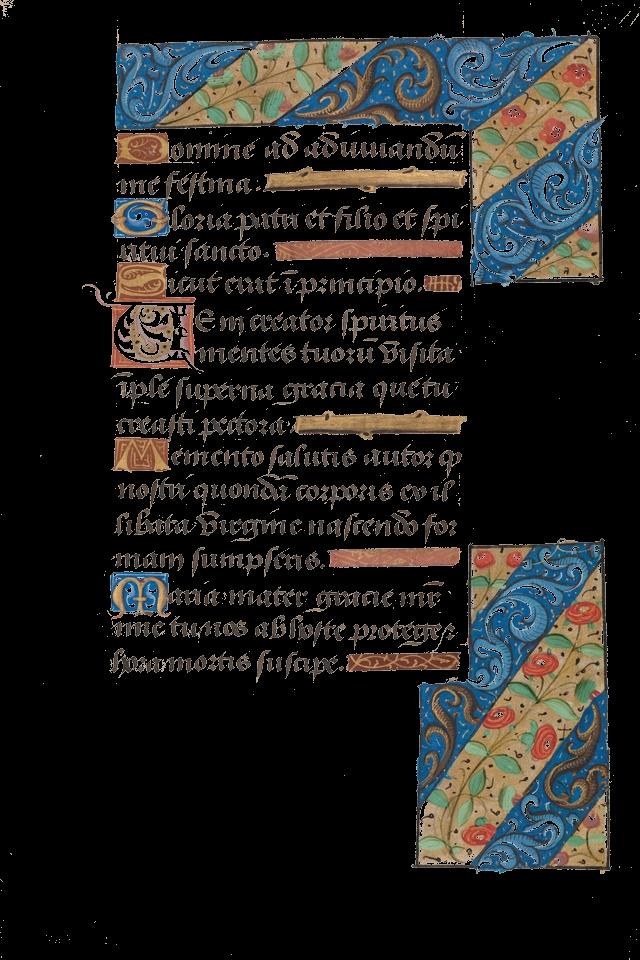 Domine ad adiuuandū
me festina.
Gloria patri et filio et spi
ritui sancto.
Sicut erat ī principio.
Veni creator spiritus
mentes tuorū visita
īple superna gracia que tu
creasti pectora
Memento salutis autor q
nostri quondā corporis ex il
libata virgine nascendo for
mam sumpseris.
Maria mater gracie mr̄
mie tu nos ab hoste protege
hora mortis suscipe.